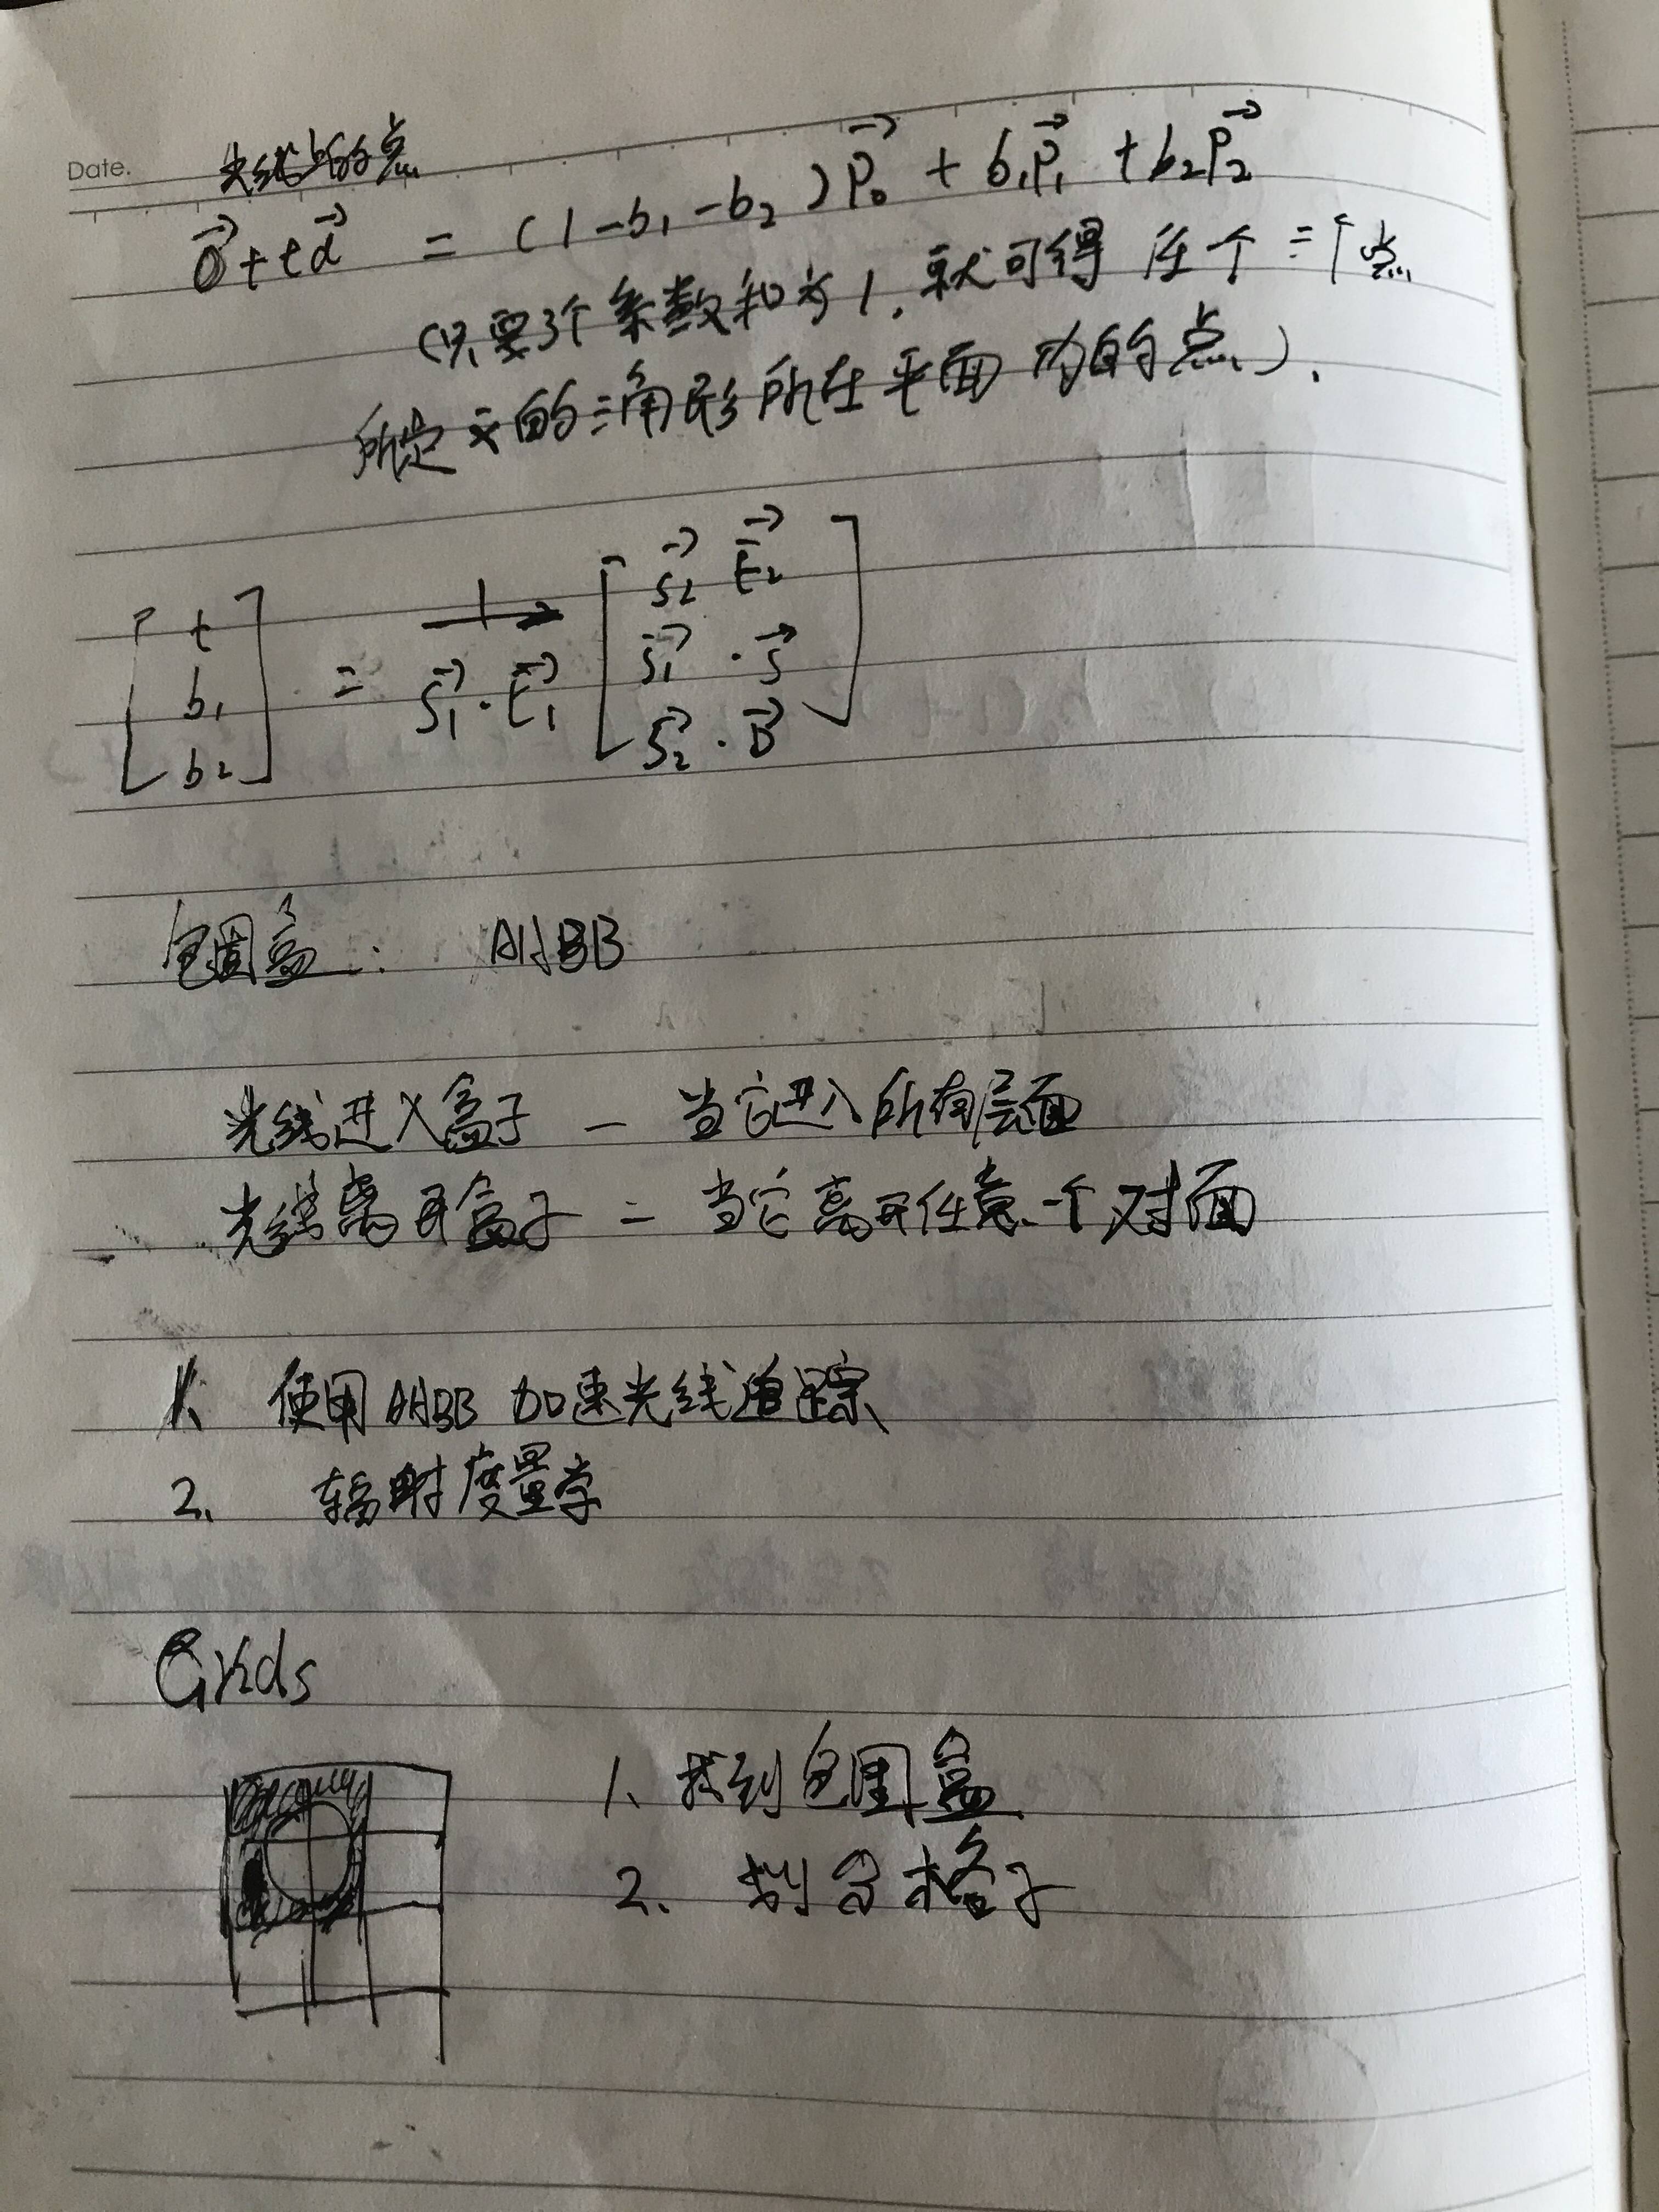 Date.
光线上的点
O⃗ + td⃗ = (1-b₁-b₂)P⃗₀ + b₁P⃗₁ + b₂P⃗₂
(只要3个系数和为1,就可得 任个三个点
所定义的三角形所在平面内的点).
[t b₁ b₂] = 1/(S⃗₁·E⃗₁) [S⃗₂ E⃗₂
S⃗₁·S⃗
S⃗₂·D⃗]
包围盒: AABB
光线进入盒子 — 当它进入所有层面
光线离开盒子 = 当它离开任意一个对面
1. 使用AABB 加速光线追踪
2. 辐射度量学
Grids
1. 找到包围盒
2. 划分格子